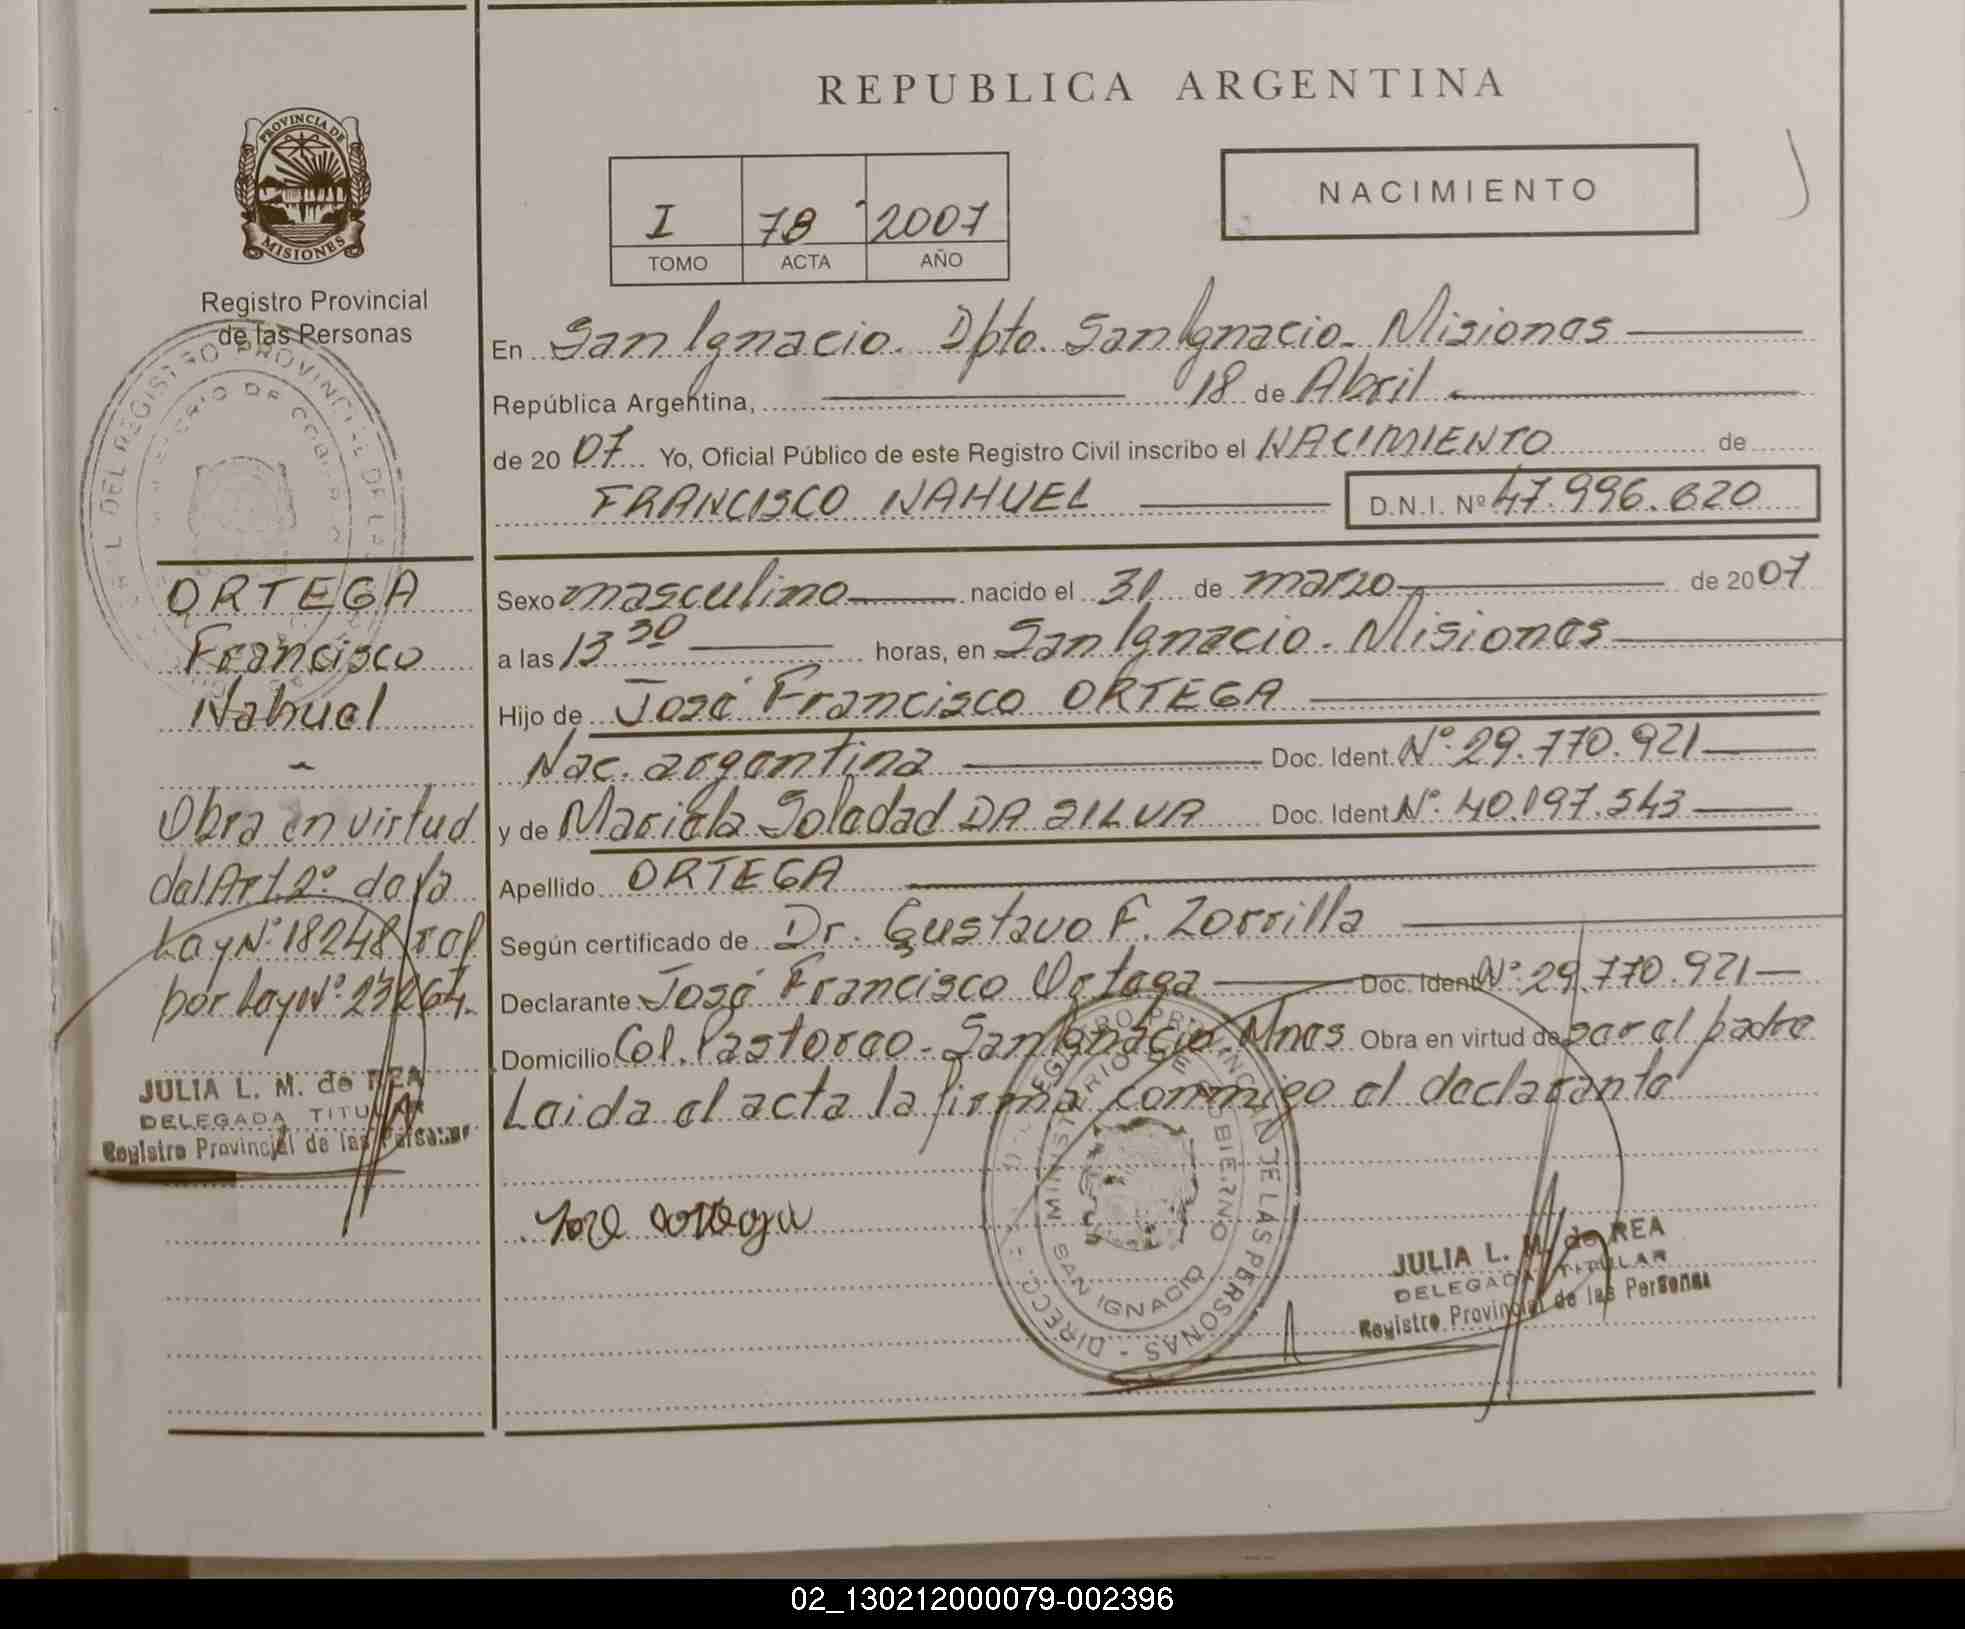 REPUBLICA ARGENTINA
PROVINCIA DE
MISIONES
Registro Provincial
de las Personas
I 78 2007
TOMO ACTA AÑO
NACIMIENTO
En San Ignacio. Dpto. San Ignacio. Misiones
República Argentina, 18 de Abril
de 2007 Yo, Oficial Público de este Registro Civil inscribo el NACIMIENTO de
FRANCISCO NAHUEL D.N.I. Nº 47.996.620
Sexo masculino nacido el 31 de marzo de 2007
a las 13 30 horas, en San Ignacio. Misiones
Hijo de José Francisco ORTEGA
Nac. argentina Doc. Ident. Nº 29.770.921
y de Mariela Soledad DA SILVA Doc. Ident Nº 40.197.543
Apellido ORTEGA
Según certificado de Dr. Gustavo F. Zorrilla
Declarante José Francisco Ortega Doc. Ident Nº 29.770.921
Domicilio Col. Pastoreo - San Ignacio. Mnes Obra en virtud de ser el padre
Leida el acta la firma conmigo el declarante
José Ortega
DIRECC REGISTRO PROVINCIAL DE LAS PERSONAS
MINISTERIO DE GOBIERNO
SAN IGNACIO
JULIA L. M. de REA
DELEGADA TITULAR
Registro Provincial de las Personas
ORTEGA
Francisco
Nahuel
Obra en virtud
del Art. 2º de la
Ley Nº 18248 ref.
por Ley Nº 23264.
JULIA L. M. de REA
DELEGADA TITULAR
Registro Provincial de las Personas
DEL REGISTRO PROVINCIAL DE LAS
02_130212000079-002396